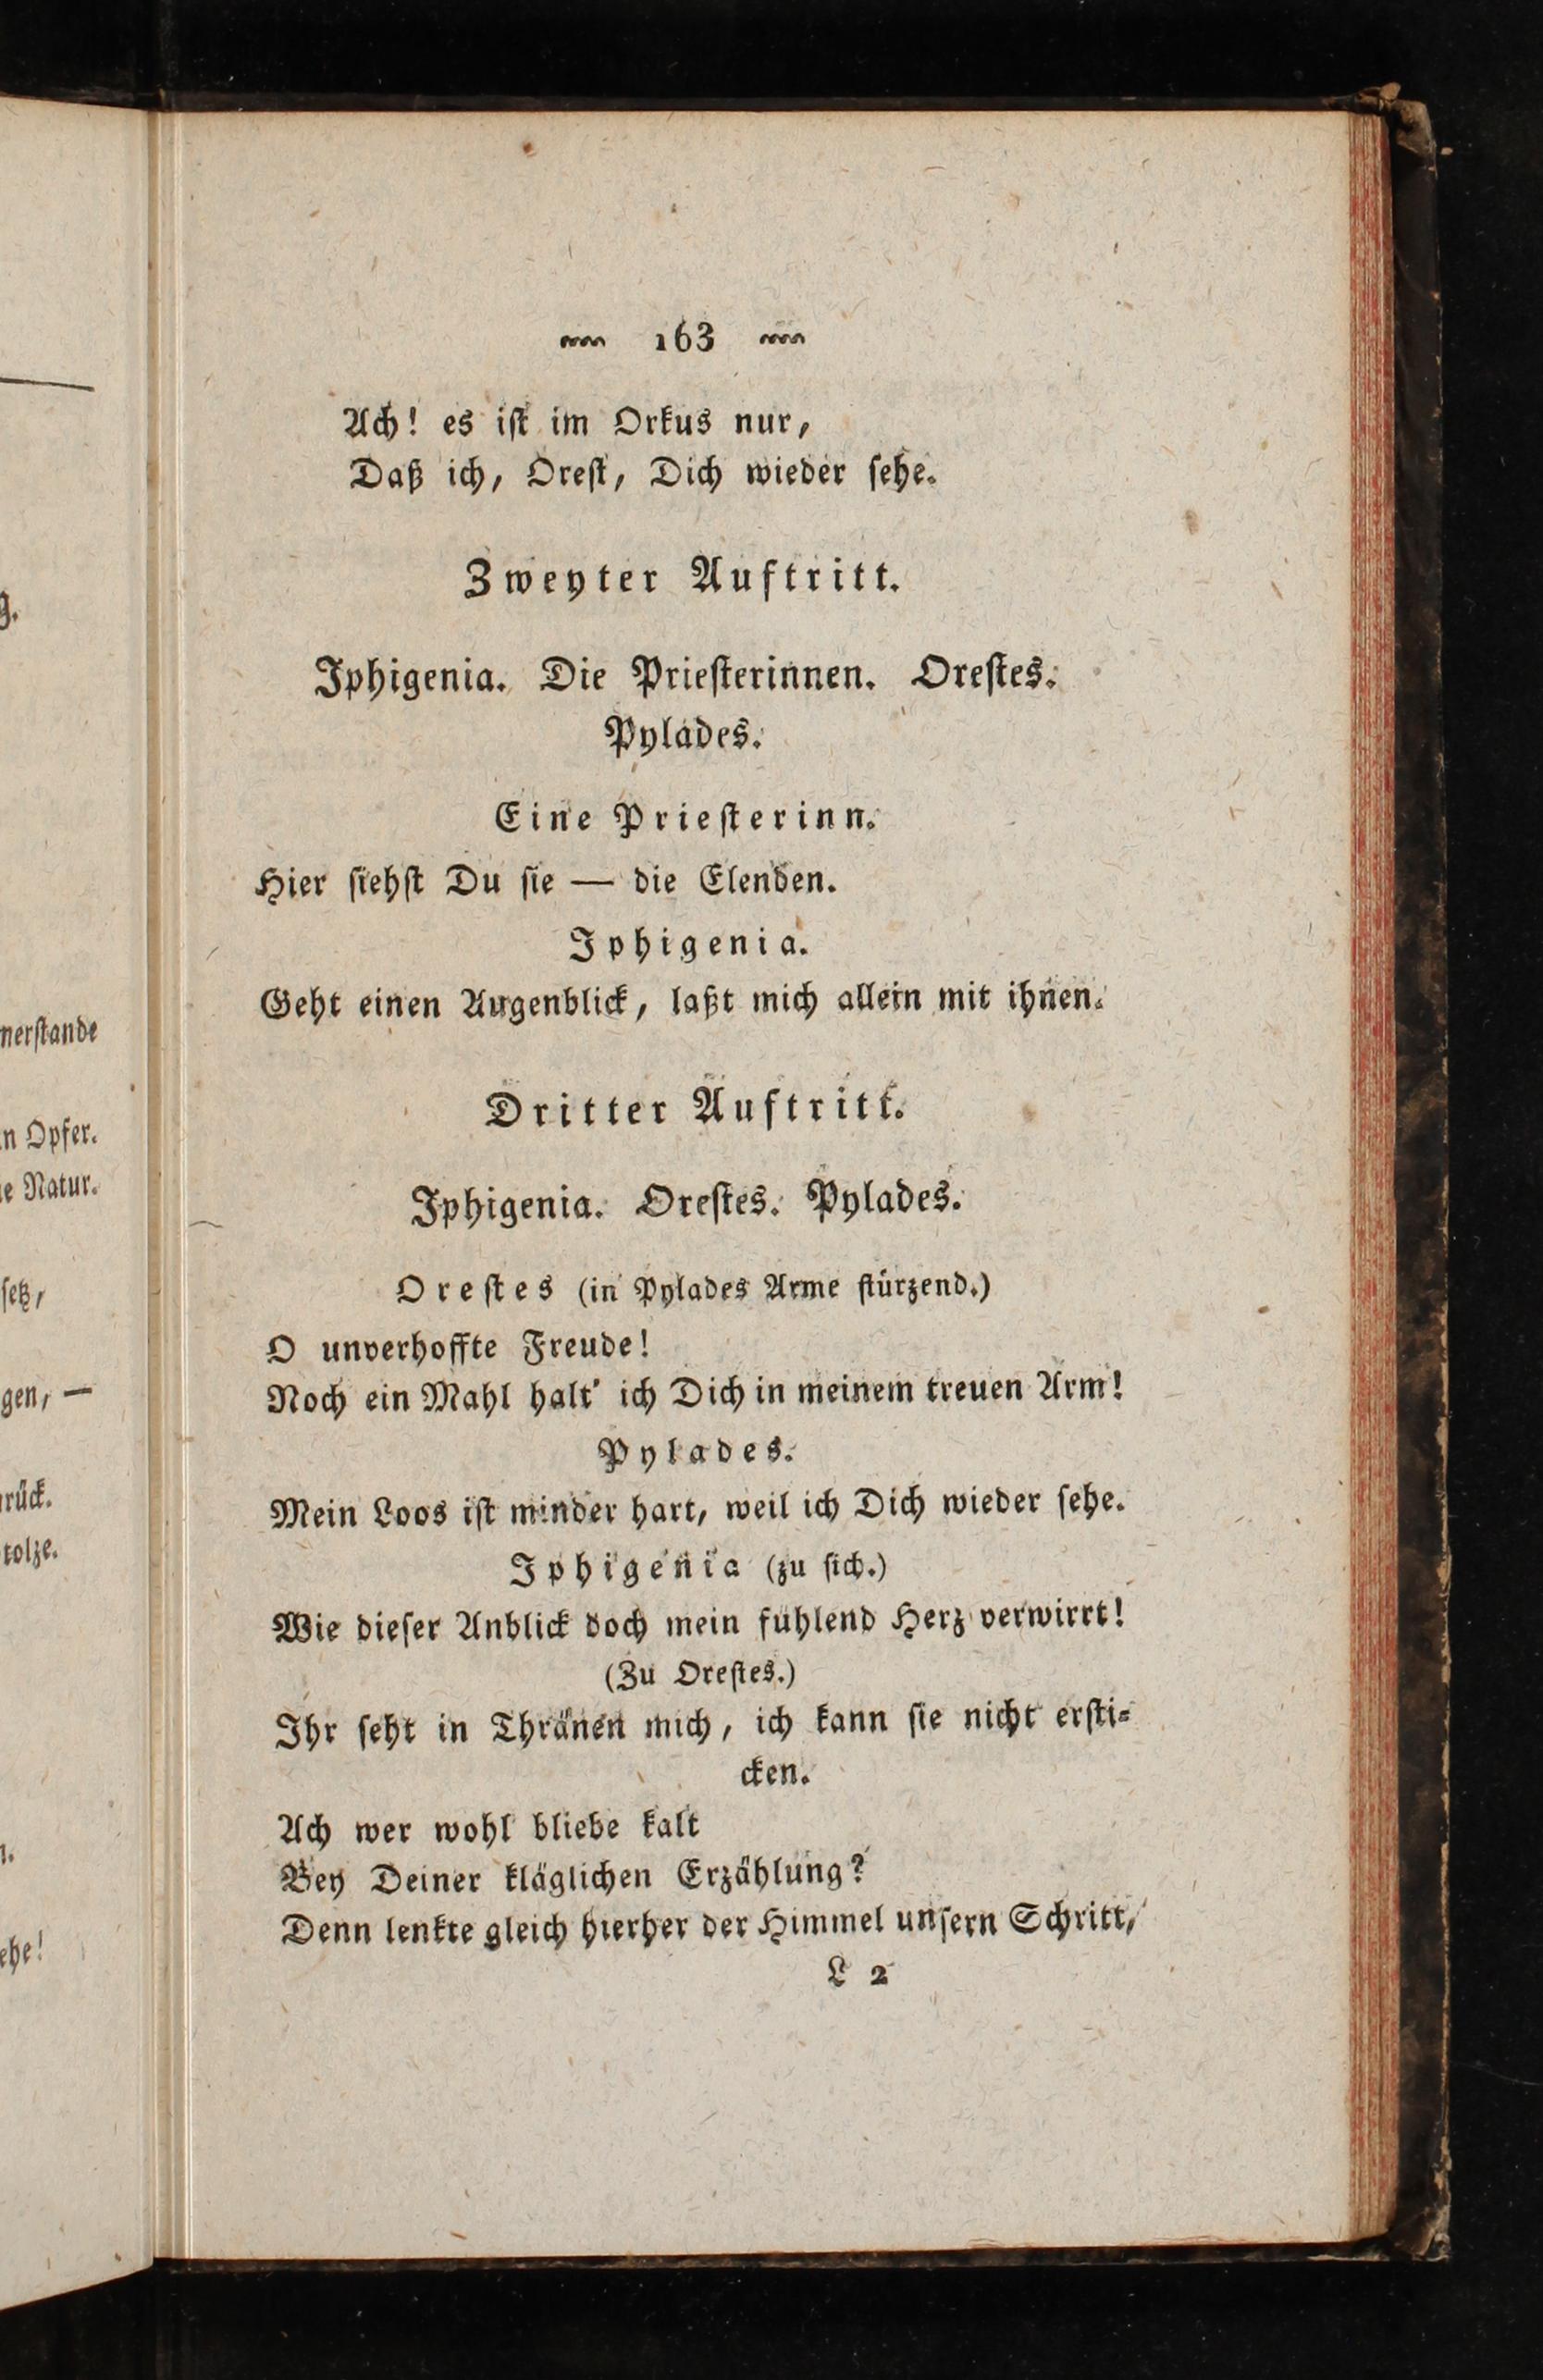 163
Ach! es iſt im Orkus nur,
Daß ich, Oreſt, Dich wieder ſehe.
Zweyter Auftritt.
Iphigenia. Die Prieſterinnen. Oreſtes.
Pylades.
Eine Prieſterinn.
Hier ſiehſt Du ſie — die Elenden.
Iphigenia.
Geht einen Augenblick, laßt mich allein mit ihnen.
Dritter Auftritt.
Iphigenia. Oreſtes. Pylades.
Oreſtes (in Pylades Arme ſtürzend.)
O unverhoffte Freude!
Noch ein Mahl halt' ich Dich in meinem treuen Arm!
Pylades.
Mein Loos iſt minder hart, weil ich Dich wieder ſehe.
Iphigenia (zu ſich.)
Wie dieſer Anblick doch mein fühlend Herz verwirrt!
(Zu Oreſtes.)
Ihr ſeht in Thränen mich, ich kann ſie nicht erſti-
cken.
Ach wer wohl bliebe kalt
Bey Deiner kläglichen Erzählung?
Denn lenkte gleich hierher der Himmel unſern Schritt,
L 2
g.
nerſtande
n Opfer.
e Natur.
ſetz,
gen, —
rück.
tolze.
ehe!